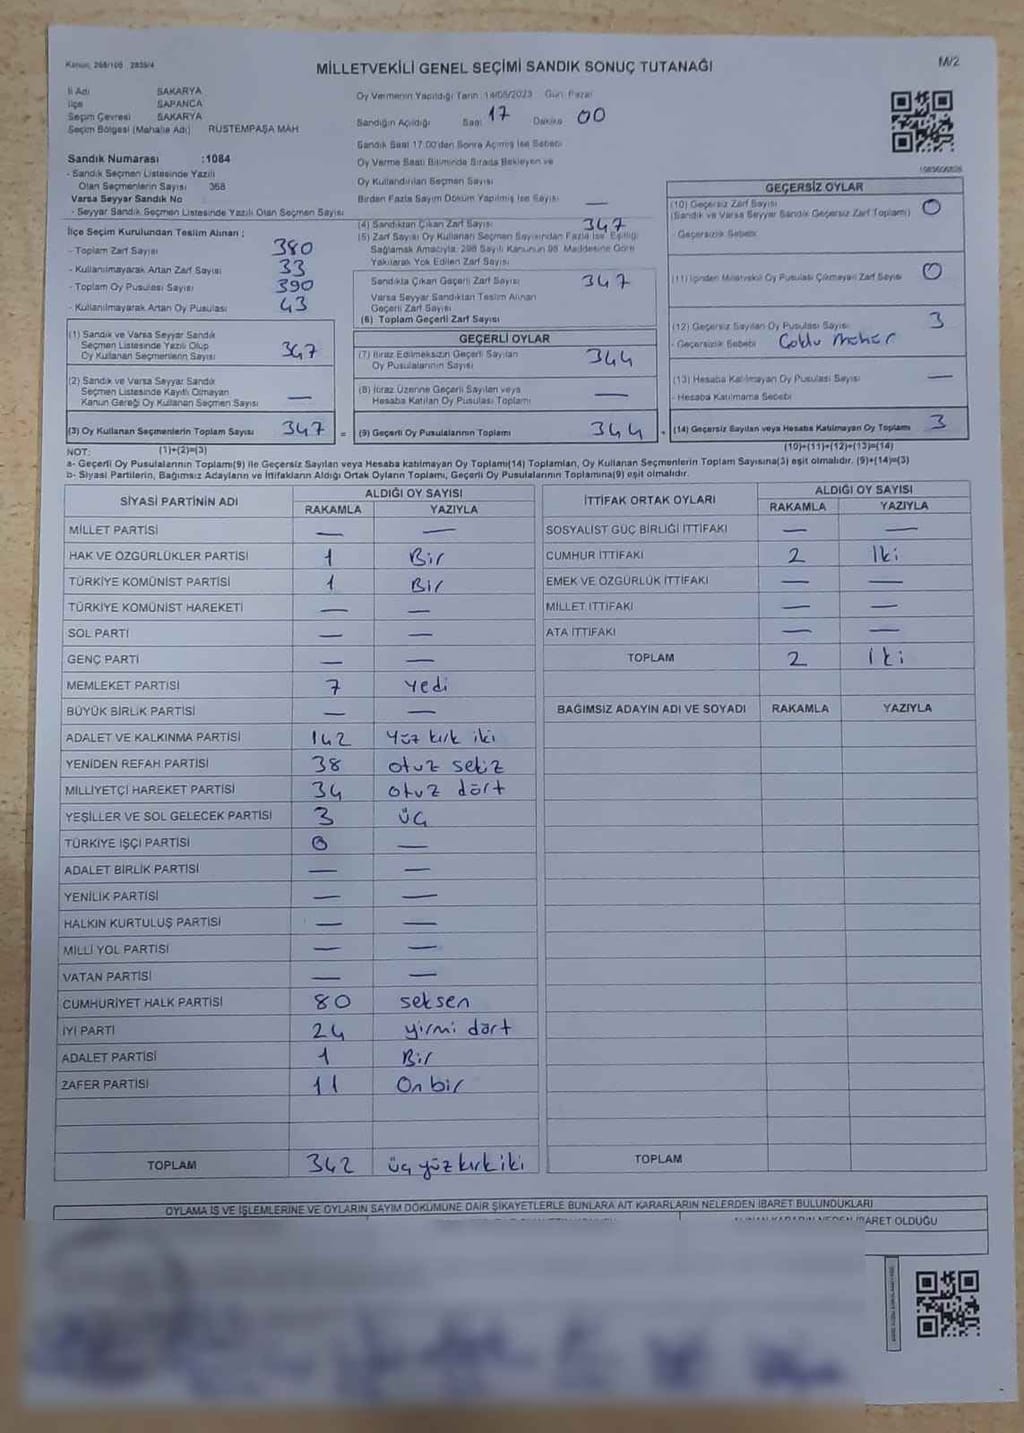 Kanun: 298/105 2839/4
M/2
MİLLETVEKİLİ GENEL SEÇİMİ SANDIK SONUÇ TUTANAĞI
İl Adı SAKARYA
İlçe SAPANCA
Seçim Çevresi SAKARYA
Seçim Bölgesi (Mahalle Adı) RÜSTEMPAŞA MAH
Sandık Numarası :1084
- Sandık Seçmen Listesinde Yazılı
Olan Seçmenlerin Sayısı 368
Varsa Seyyar Sandık No
- Seyyar Sandık Seçmen Listesinde Yazılı Olan Seçmen Sayısı
İlçe Seçim Kurulundan Teslim Alınan ;
- Toplam Zarf Sayısı 380
- Kullanılmayarak Artan Zarf Sayısı 33
- Toplam Oy Pusulası Sayısı 390
- Kullanılmayarak Artan Oy Pusulası 43
(1) Sandık ve Varsa Seyyar Sandık
Seçmen Listesinde Yazılı Olup
Oy Kullanan Seçmenlerin Sayısı 347
(2) Sandık ve Varsa Seyyar Sandık
Seçmen Listesinde Kayıtlı Olmayan
Kanun Gereği Oy Kullanan Seçmen Sayısı —
(3) Oy Kullanan Seçmenlerin Toplam Sayısı 347 =
Oy Vermenin Yapıldığı Tarih :14/05/2023 Gün: Pazar
Sandığın Açıldığı Saat 17 Dakika 00
Sandık Saat 17.00'den Sonra Açılmış İse Sebebi
Oy Verme Saati Bitiminde Sırada Bekleyen ve
Oy Kullandırılan Seçmen Sayısı
Birden Fazla Sayım Döküm Yapılmış İse Sayısı —
(4) Sandıktan Çıkan Zarf Sayısı 347
(5) Zarf Sayısı Oy Kullanan Seçmen Sayısından Fazla İse, Eşitliği
Sağlamak Amacıyla, 298 Sayılı Kanunun 98. Maddesine Göre
Yakılarak Yok Edilen Zarf Sayısı
Sandıkta Çıkan Geçerli Zarf Sayısı 347
Varsa Seyyar Sandıktan Teslim Alınan
Geçerli Zarf Sayısı
(6) Toplam Geçerli Zarf Sayısı
GEÇERLİ OYLAR
(7) İtiraz Edilmeksizin Geçerli Sayılan
Oy Pusulalarının Sayısı 344
(8) İtiraz Üzerine Geçerli Sayılan veya
Hesaba Katılan Oy Pusulası Toplamı —
(9) Geçerli Oy Pusulalarının Toplamı 344 +
GEÇERSİZ OYLAR
(10) Geçersiz Zarf Sayısı
(Sandık ve Varsa Seyyar Sandık Geçersiz Zarf Toplamı) 0
- Geçersizlik Sebebi
(11) İçinden Milletvekili Oy Pusulası Çıkmayan Zarf Sayısı 0
(12) Geçersiz Sayılan Oy Pusulası Sayısı 3
- Geçersizlik Sebebi
(13) Hesaba Katılmayan Oy Pusulası Sayısı —
- Hesaba Katılmama Sebebi
(14) Geçersiz Sayılan veya Hesaba Katılmayan Oy Toplamı 3
NOT: (1)+(2)=(3) (10)+(11)+(12)+(13)=(14)
a- Geçerli Oy Pusulalarının Toplamı(9) ile Geçersiz Sayılan veya Hesaba katılmayan Oy Toplamı(14) Toplamları, Oy Kullanan Seçmenlerin Toplam Sayısına(3) eşit olmalıdır. (9)+(14)=(3)
b- Siyasi Partilerin, Bağımsız Adayların ve İttifakların Aldığı Ortak Oyların Toplamı, Geçerli Oy Pusulalarının Toplamına(9) eşit olmalıdır.
SİYASİ PARTİNİN ADI ALDIĞI OY SAYISI
RAKAMLA YAZIYLA
MİLLET PARTİSİ — —
HAK VE ÖZGÜRLÜKLER PARTİSİ 1 Bir
TÜRKİYE KOMÜNİST PARTİSİ 1 Bir
TÜRKİYE KOMÜNİST HAREKETİ — —
SOL PARTİ — —
GENÇ PARTİ — —
MEMLEKET PARTİSİ 7 Yedi
BÜYÜK BİRLİK PARTİSİ — —
ADALET VE KALKINMA PARTİSİ 142 Yüz kırk iki
YENİDEN REFAH PARTİSİ 38 otuz sekiz
MİLLİYETÇİ HAREKET PARTİSİ 34 otuz dört
YEŞİLLER VE SOL GELECEK PARTİSİ 3 üç
TÜRKİYE İŞÇİ PARTİSİ 0 —
ADALET BİRLİK PARTİSİ — —
YENİLİK PARTİSİ — —
HALKIN KURTULUŞ PARTİSİ — —
MİLLİ YOL PARTİSİ — —
VATAN PARTİSİ — —
CUMHURİYET HALK PARTİSİ 80 seksen
İYİ PARTİ 24 yirmi dört
ADALET PARTİSİ 1 Bir
ZAFER PARTİSİ 11 On bir
TOPLAM 342 üç yüz kırk iki
İTTİFAK ORTAK OYLARI ALDIĞI OY SAYISI
RAKAMLA YAZIYLA
SOSYALİST GÜÇ BİRLİĞİ İTTİFAKI — —
CUMHUR İTTİFAKI 2 İki
EMEK VE ÖZGÜRLÜK İTTİFAKI — —
MİLLET İTTİFAKI — —
ATA İTTİFAKI — —
TOPLAM 2 İki
BAĞIMSIZ ADAYIN ADI VE SOYADI RAKAMLA YAZIYLA
TOPLAM
OYLAMA İŞ VE İŞLEMLERİNE VE OYLARIN SAYIM DÖKÜMÜNE DAİR ŞİKAYETLERLE BUNLARA AİT KARARLARIN NELERDEN İBARET BULUNDUKLARI
İBARET OLDUĞU